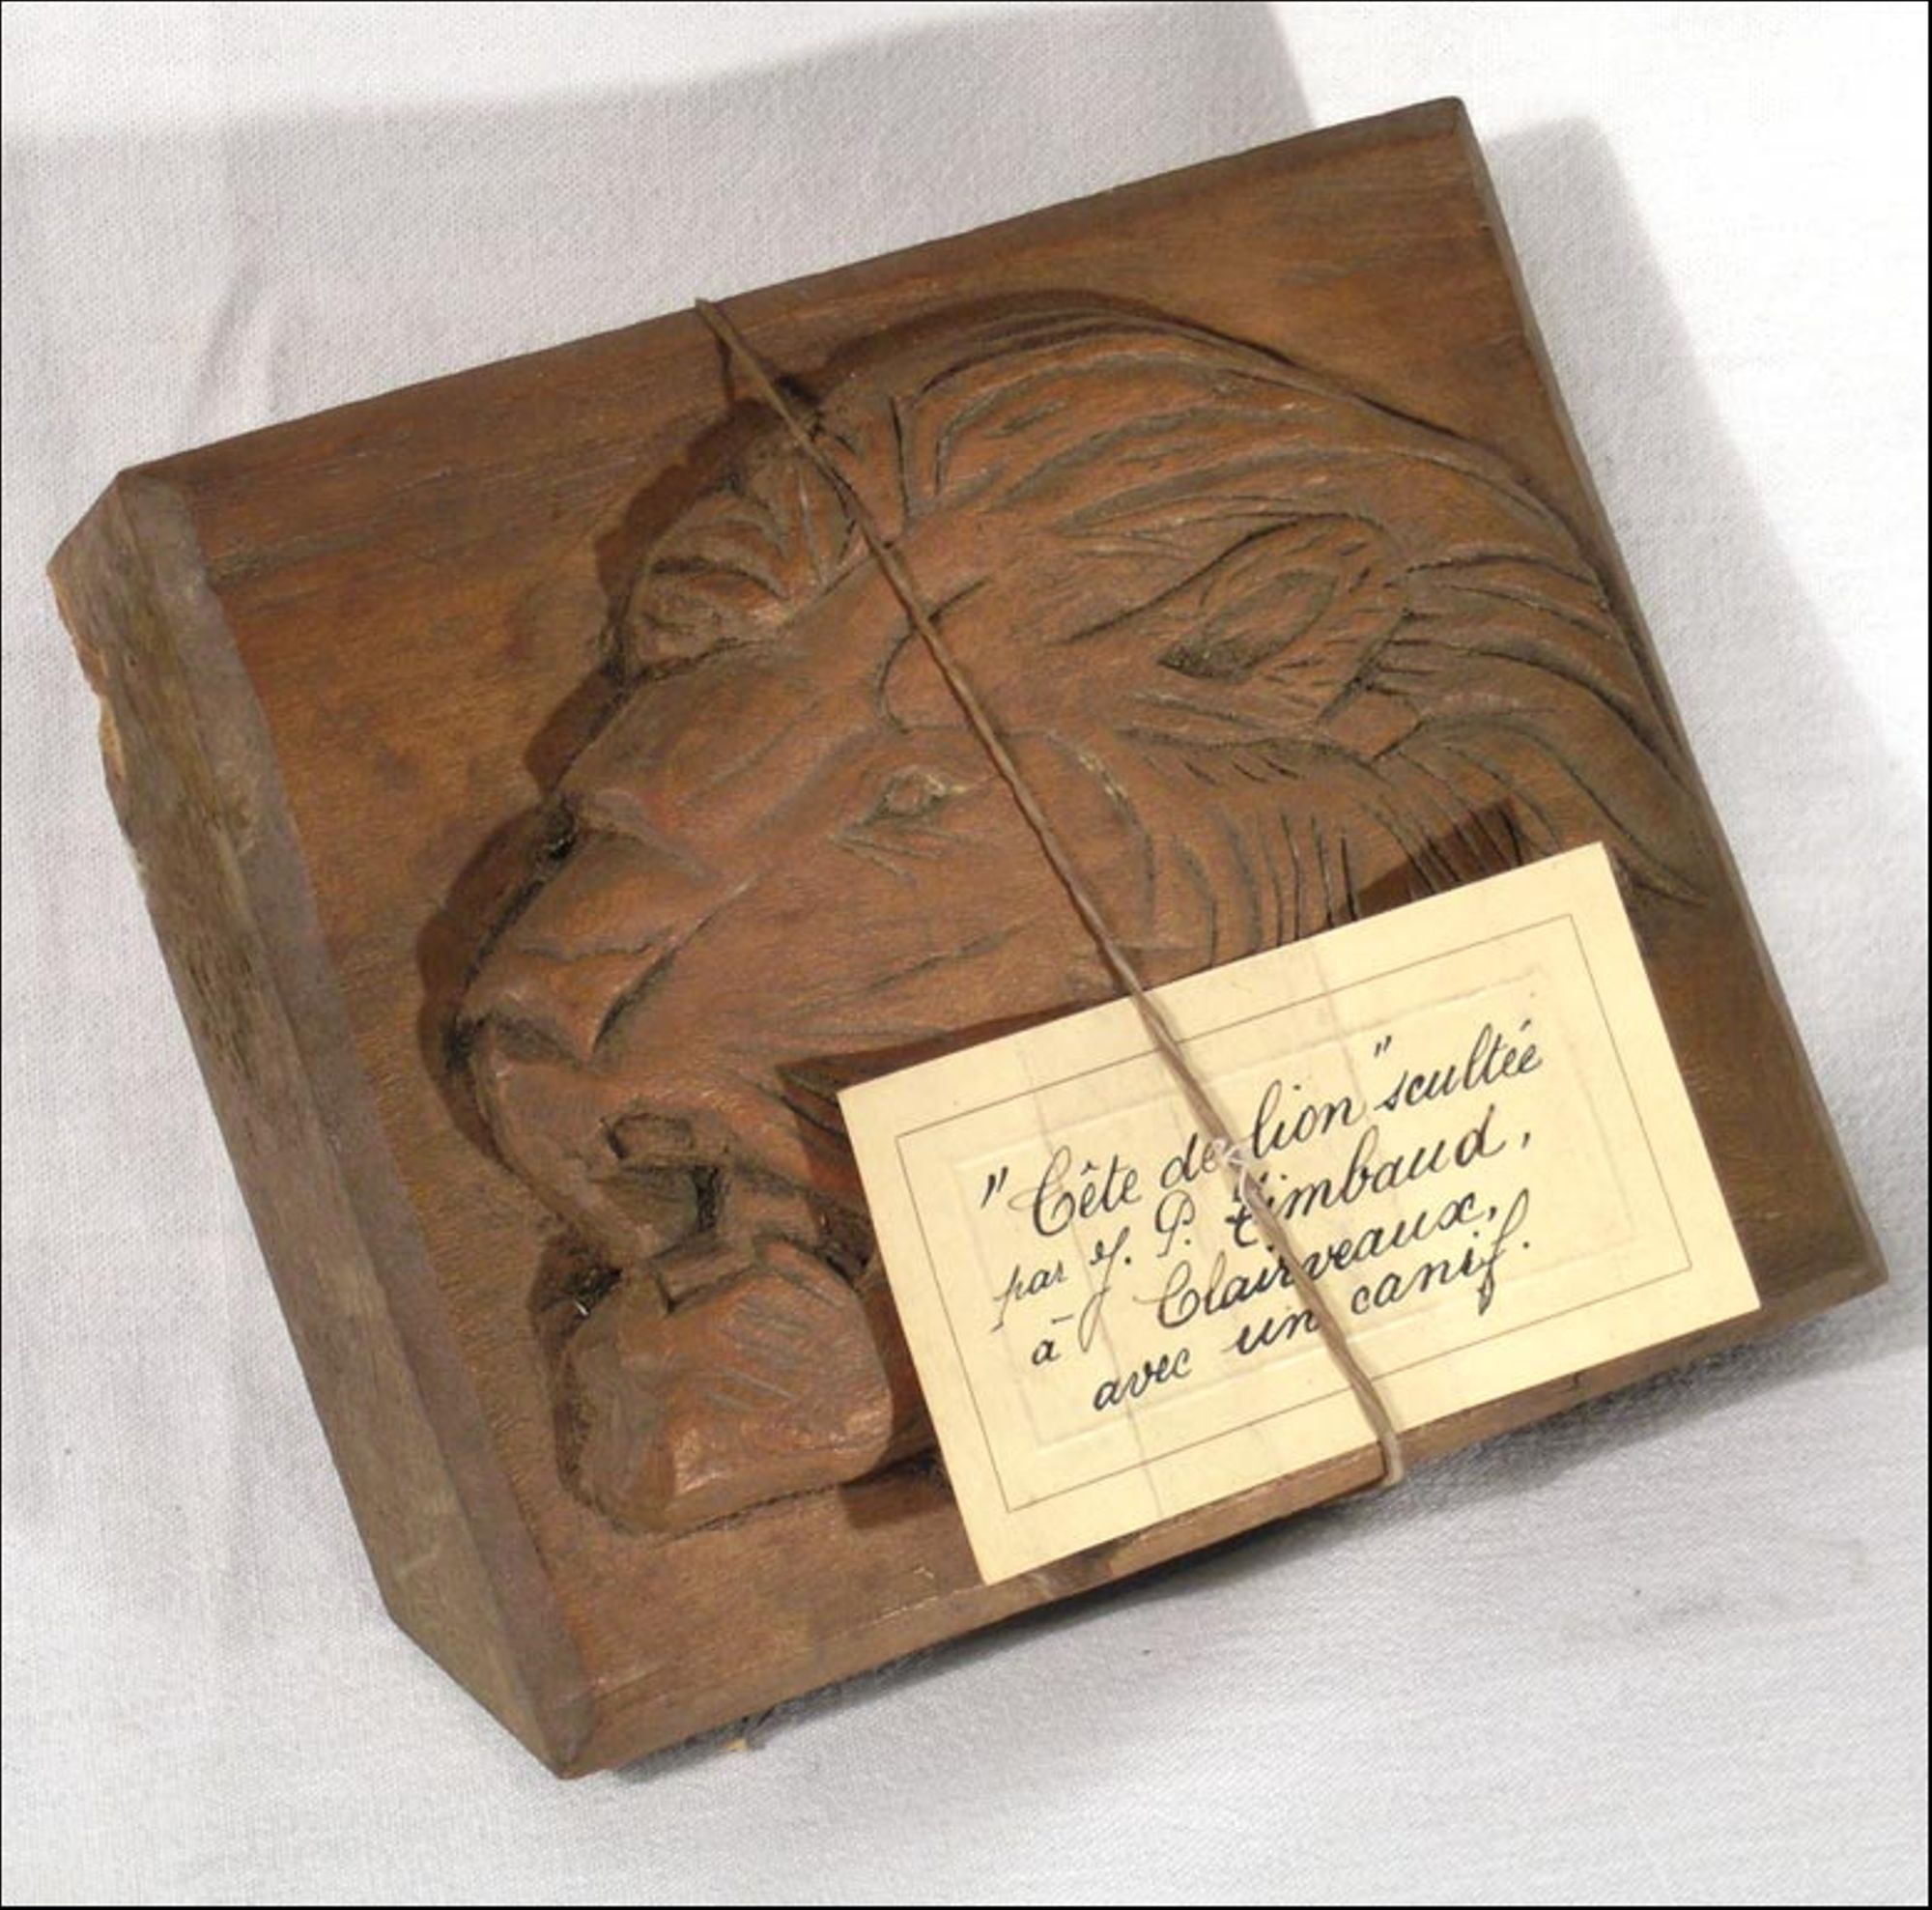 "Tête de lion" scultée
par J. P. Timbaud,
à Clairveaux,
avec un canif.